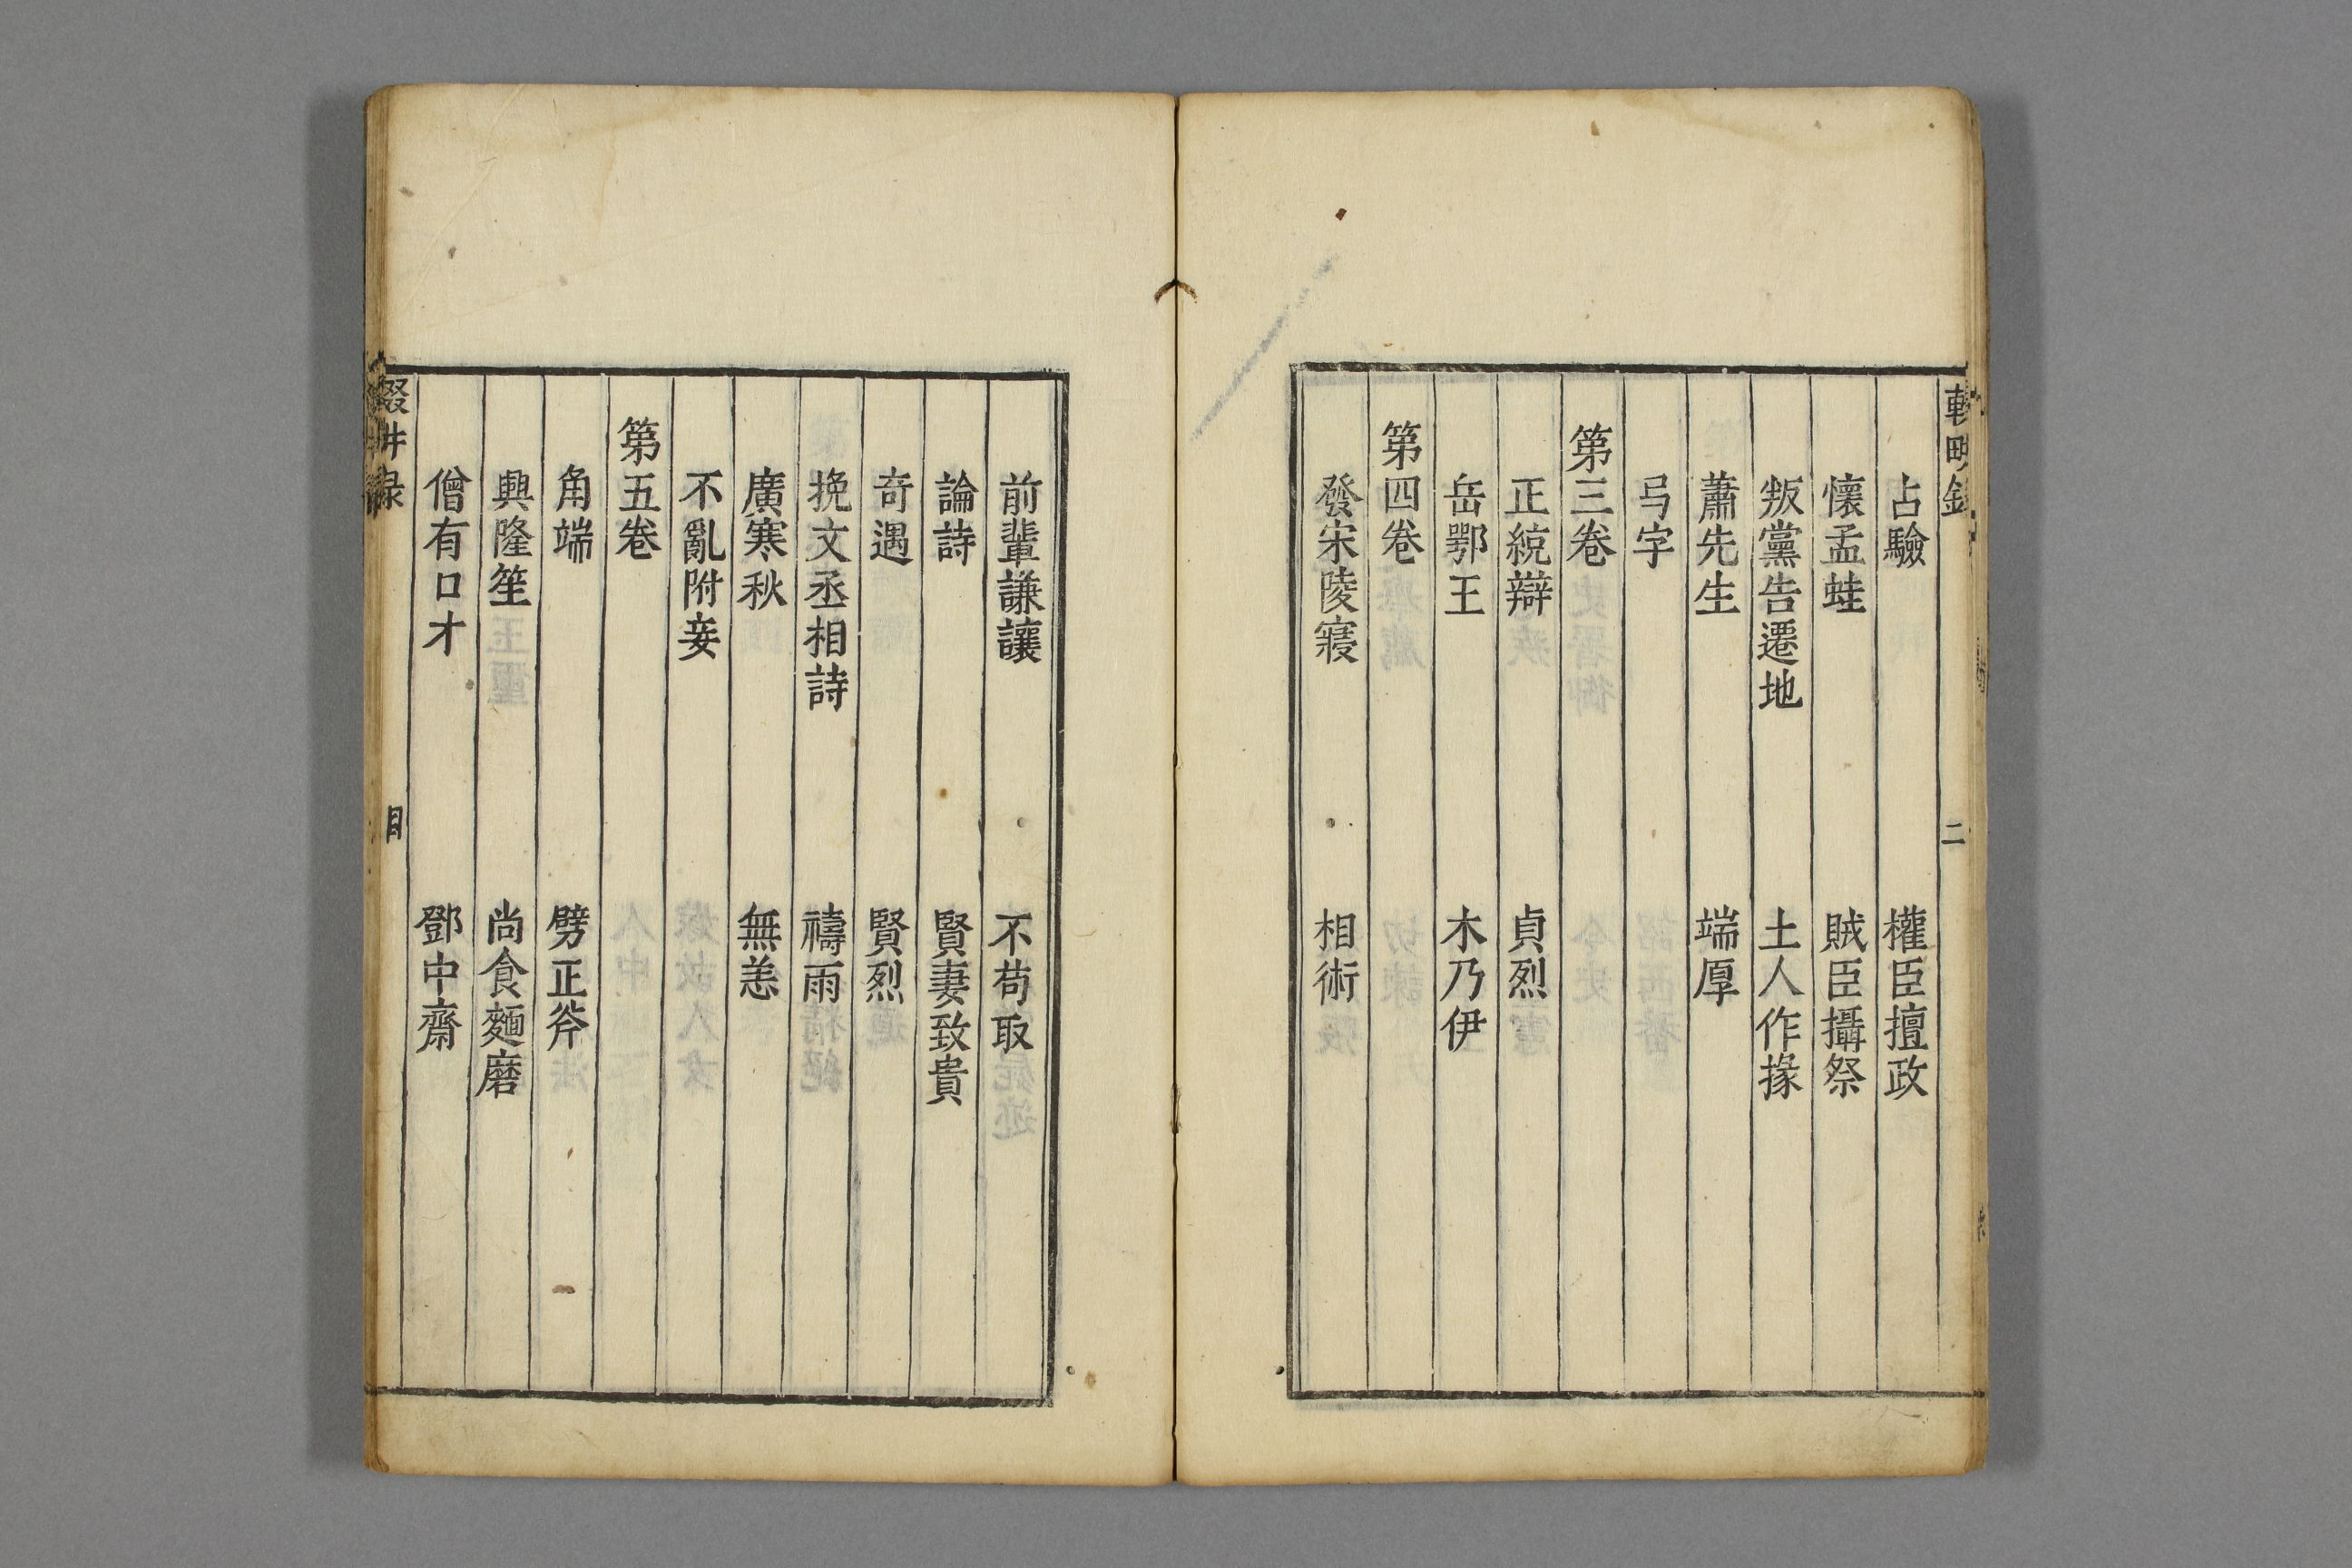 輟畊錄
二
占驗 權臣擅政
懷孟蛙 賊臣攝祭
叛黨告遷地 土人作掾
蕭先生 端厚
弓字
第三卷
正統辯 貞烈
岳鄂王 木乃伊
第四卷
發宋陵寢 相術
前輩謙讓 不苟取
論詩 賢妻致貴
奇遇 賢烈
挽文丞相詩 禱雨
廣寒秋 無恙
不亂附妾
第五卷
角端 劈正斧
興隆笙 尚食麵磨
僧有口才 鄧中齋
目